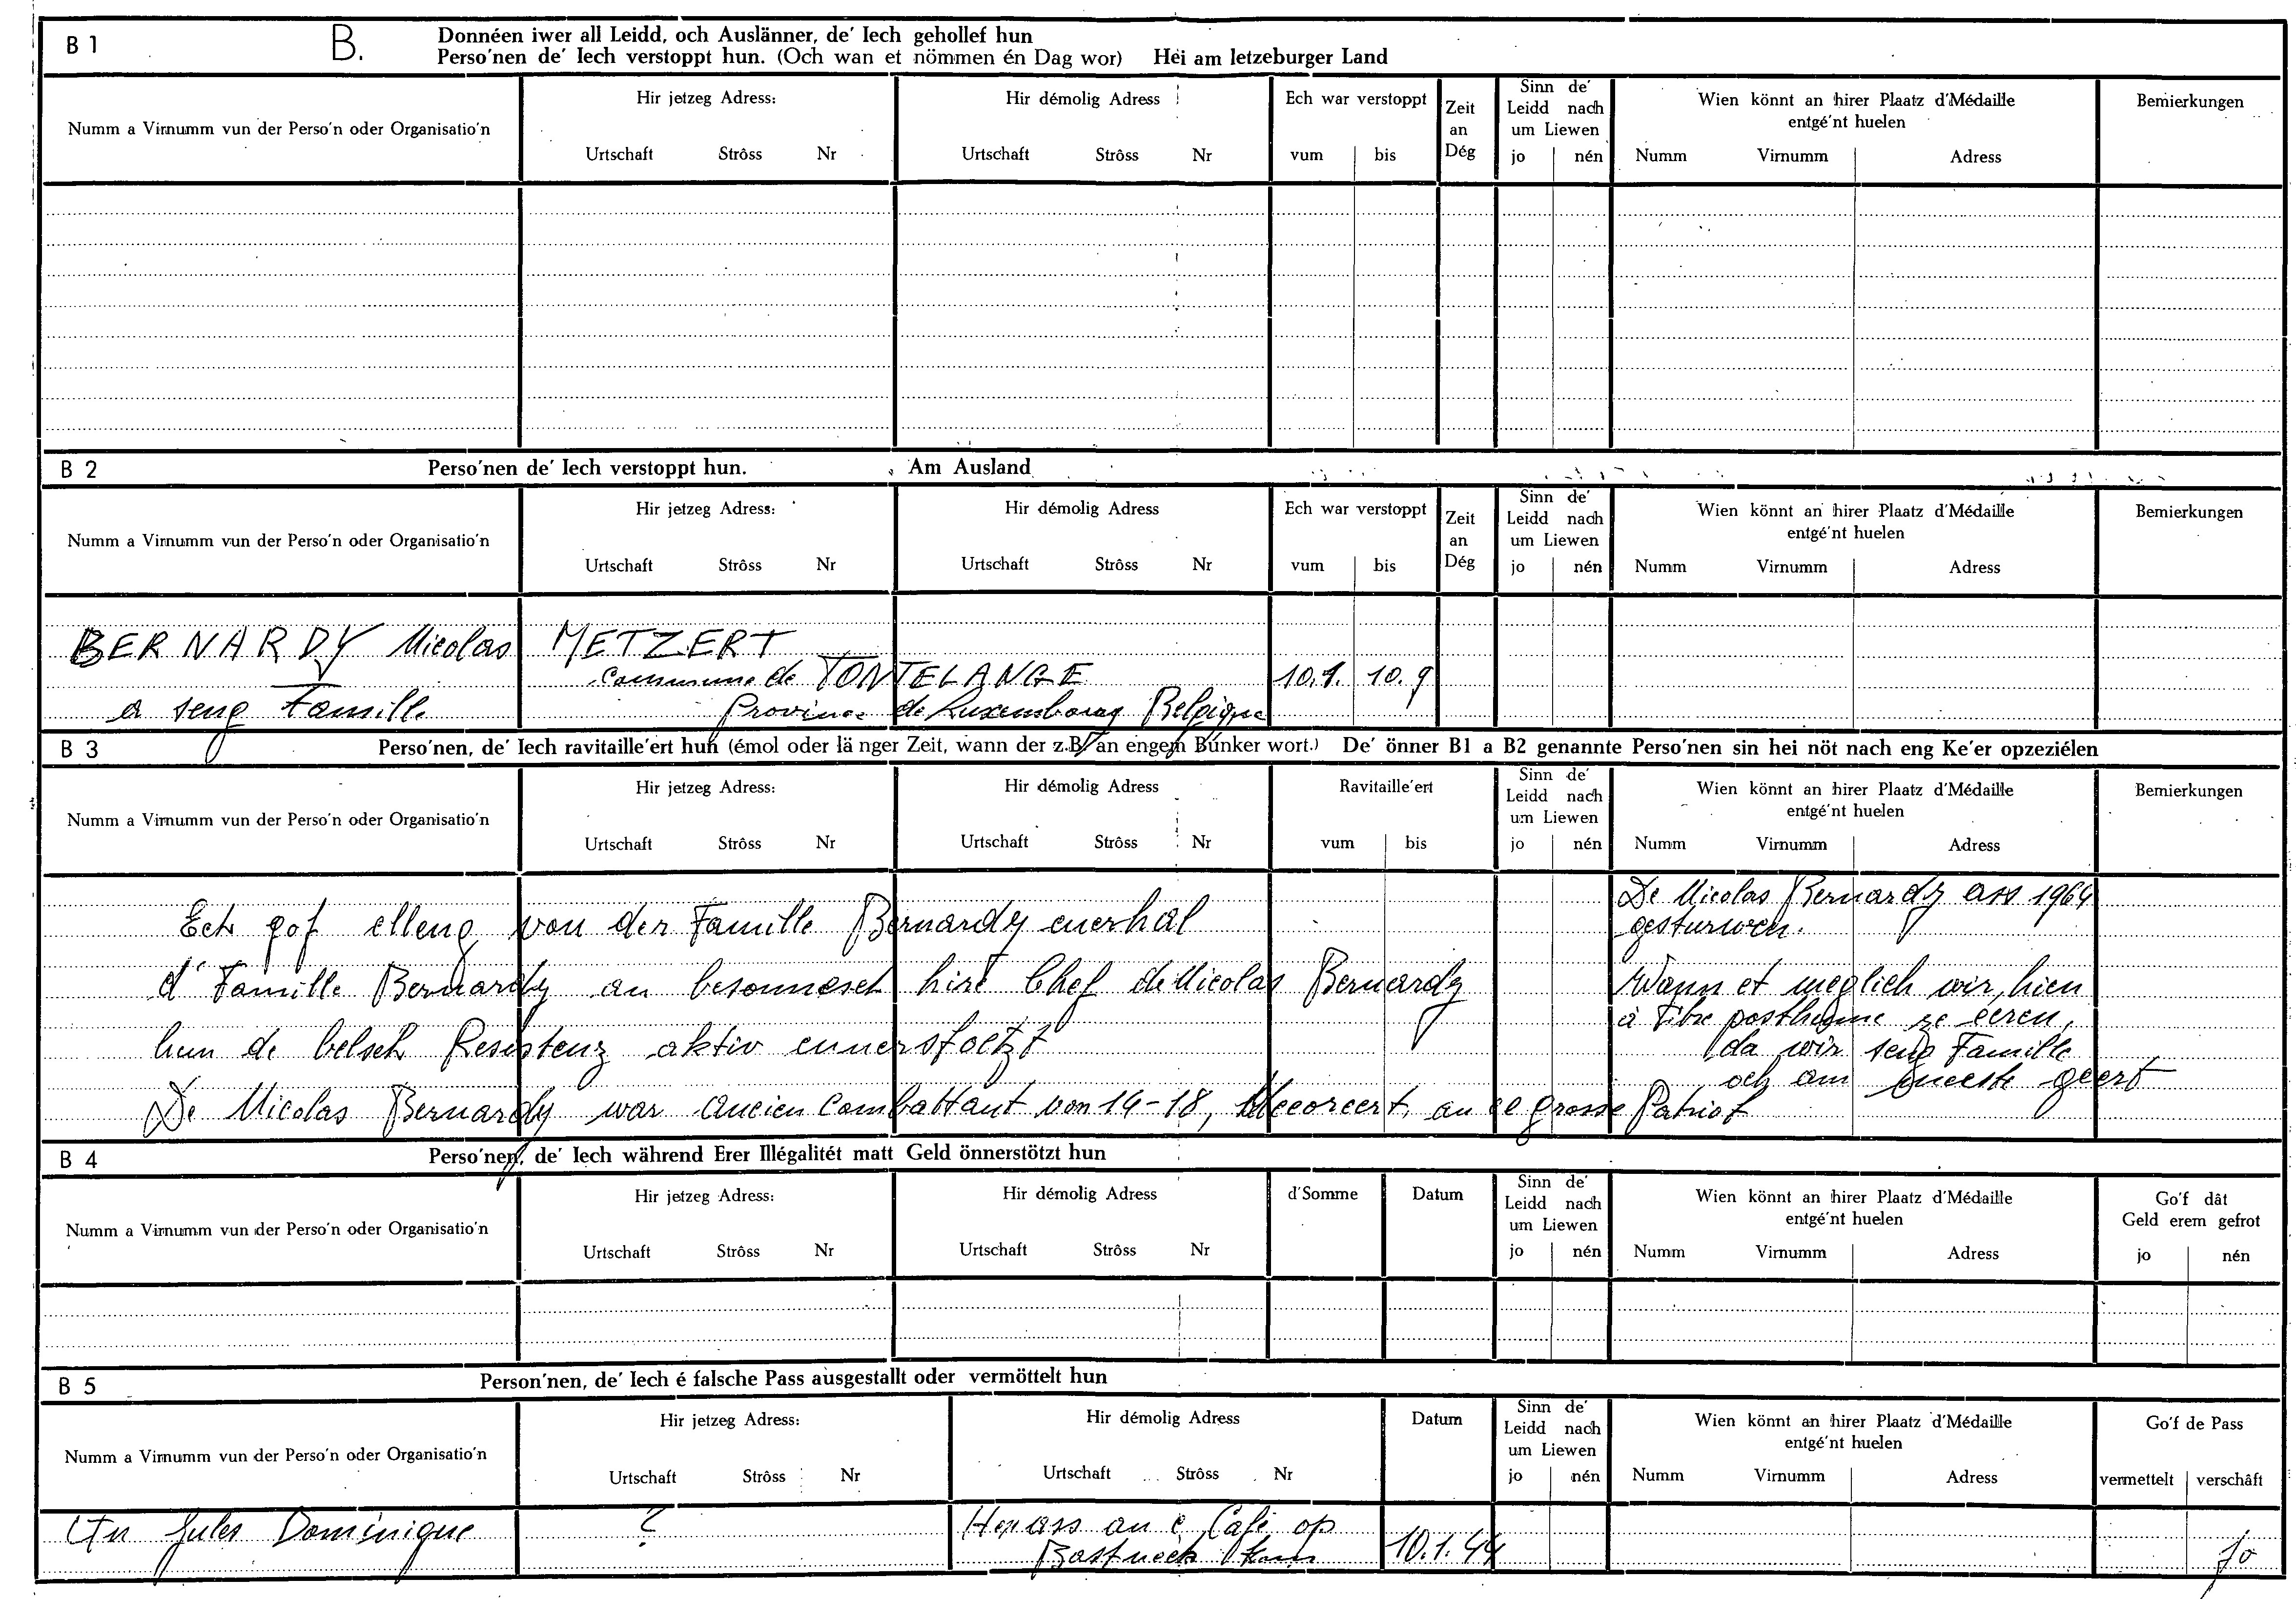 B 1
B.
Donnéen iwer all Leidd, och Auslänner, de' Iech gehollef hun
Perso'nen de' Iech verstoppt hun. (Och wan et nömmen én Dag wor) Hei am letzeburger Land
Numm a Virnumm vun der Perso'n oder Organisatio'n
Hir jetzeg Adress:
Urtschaft Strôss Nr
Hir démolig Adress
Urtschaft Strôss Nr
Ech war verstoppt
vum bis
Zeit
an
Dég
Sinn de'
Leidd nach
um Liewen
jo nén
Wien könnt an hirer Plaatz d'Médaille
entgé'nt huelen
Numm Virnumm Adress
Bemierkungen
B 2
Perso'nen de' Iech verstoppt hun. Am Ausland
Numm a Virnumm vun der Perso'n oder Organisatio'n
Hir jetzeg Adress:
Urtschaft Strôss Nr
Hir démolig Adress
Urtschaft Strôss Nr
Ech war verstoppt
vum bis
Zeit
an
Dég
Sinn de'
Leidd nach
um Liewen
jo nén
Wien könnt an hirer Plaatz d'Médaille
entgé'nt huelen
Numm Virnumm Adress
Bemierkungen
BERNARDY Nicolas METZERT
Commune de TONTELANGE 10.1. 10.9
a seng Famille Province de Luxembourg Belgique
B 3
Perso'nen, de' Iech ravitaille'ert hun (émol oder länger Zeit, wann der z.B. an engem Bunker wort.) De' önner B1 a B2 genannte Perso'nen sin hei nöt nach eng Ke'er opzeziélen
Numm a Virnumm vun der Perso'n oder Organisatio'n
Hir jetzeg Adress:
Urtschaft Strôss Nr
Hir démolig Adress
Urtschaft Strôss Nr
Ravitaille'ert
vum bis
Sinn de'
Leidd nach
um Liewen
jo nén
Wien könnt an hirer Plaatz d'Médaille
entgé'nt huelen
Numm Virnumm Adress
Bemierkungen
Ech gof elleng von der Famille Bernardy enerhal
d'Famille Bernardy an besonnesch hire Chef de Nicolas Bernardy
hun de belsch Resistenz aktiv ennerstoetzt
De Nicolas Bernardy war Ancien Combattant von 14-18, an grosse Patriot
De Nicolas Bernardy ass 1964
gesturwen.
Wann et meglich wir, hien
à titre posthume ze eeren,
da wir seng Famille
och am geert
B 4
Perso'nen, de' Iech während Erer Illégalitét matt Geld önnerstötzt hun
Numm a Virnumm vun der Perso'n oder Organisatio'n
Hir jetzeg Adress:
Urtschaft Strôss Nr
Hir démolig Adress
Urtschaft Strôss Nr
d'Somme
Datum
Sinn de'
Leidd nach
um Liewen
jo nén
Wien könnt an hirer Plaatz d'Médaille
entgé'nt huelen
Numm Virnumm Adress
Go'f dât
Geld erem gefrot
jo nén
B 5
Person'nen, de' Iech é falsche Pass ausgestallt oder vermöttelt hun
Numm a Virnumm vun der Perso'n oder Organisatio'n
Hir jetzeg Adress:
Urtschaft Strôss Nr
Hir démolig Adress
Urtschaft Strôss Nr
Datum
Sinn de'
Leidd nach
um Liewen
jo nén
Wien könnt an hirer Plaatz d'Médaille
entgé'nt huelen
Numm Virnumm Adress
Go'f de Pass
vermettelt verschâft
Jules Dominique ? ass an e Café op
10.1.44 jo